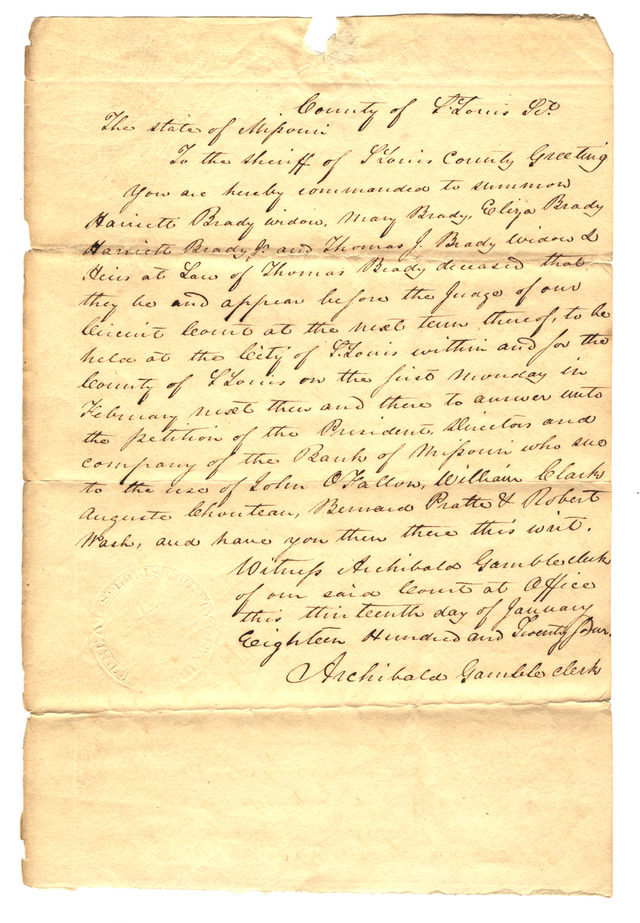 County of St Louis Sct.
The state of Missouri
To the sheriff of St Louis County Greeting
You are hereby commanded to summon
Harriett Brady widow, Mary Brady, Eliza Brady
Harriett Brady Jr and Thomas J. Brady widow &
Heirs at Law of Thomas Brady deceased that
they be and appear before the Judge of our
Circuit Court at the next term thereof, to be
held at the City of St. Louis within and for the
County of St Louis on the first Monday in
February next then and there to answer unto
the petition of the President, Directors and
company of the Bank of Missouri who sue
to the use of John OFallon, William Clark
Auguste Chouteau, Bernard Pratte & Robert
Wash, and have you then there this writ.
Witness Archibald Gamble clerk
of our said Court at Office
this thirteenth day of January
Eighteen Hundred and Twenty four.
Archibald Gamble clerk